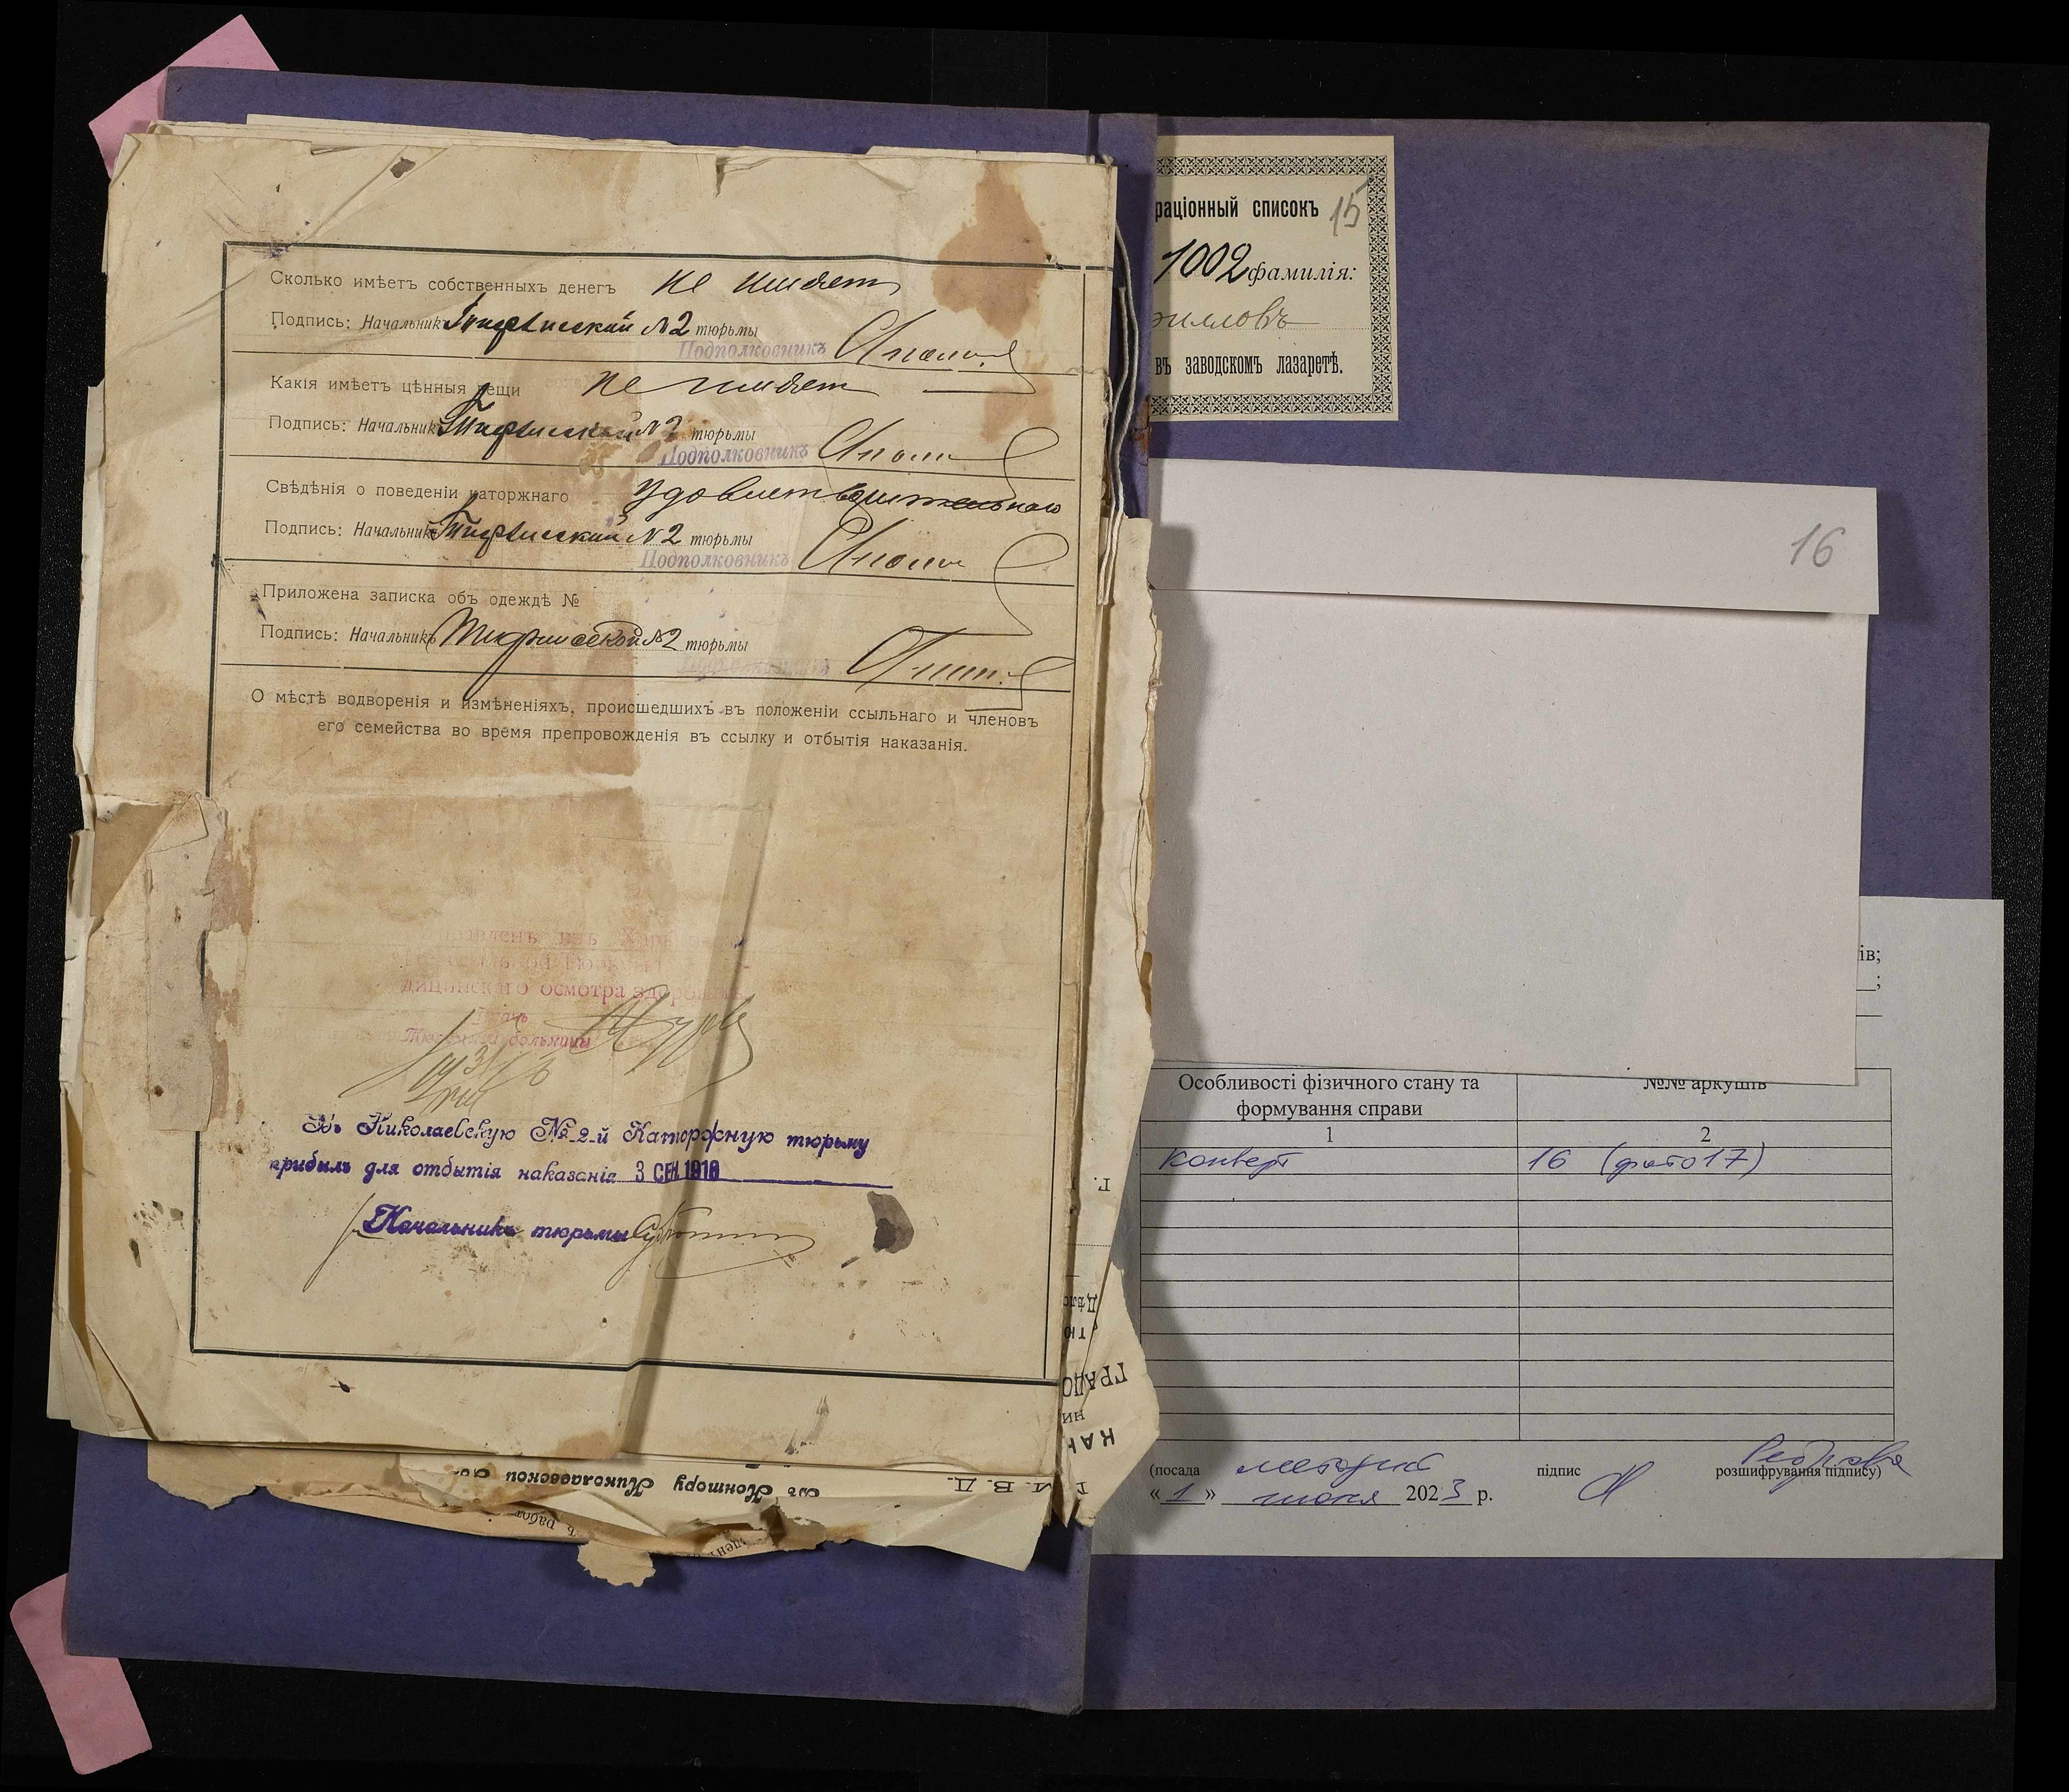 Сколько имѣетъ собственныхъ денегъ не имѣетъ
Подпись: Начальникъ Тифлисской №2 тюрьмы
Подполковникъ
Какія имѣетъ цѣнныя вещи не имѣетъ
Подпись: Начальникъ Тифлисской №2 тюрьмы
Подполковникъ
Свѣдѣнія о поведеніи каторжнаго удовлетворительнаго
Подпись: Начальникъ Тифлисской №2 тюрьмы
Подполковникъ
Приложена записка объ одеждѣ №
Подпись: Начальникъ Тифлисской №2 тюрьмы
О мѣстѣ водворенія и измѣненіяхъ, происшедшихъ въ положеніи ссыльнаго и членовъ
его семейства во время препровожденія въ ссылку и отбытія наказанія.
изъ
дицинскаго осмотра
больницы
Въ Николаевскую № 2-й Каторжную тюрьму
прибылъ для отбытія наказанія 3 СЕН. 1916
Начальникъ тюрьмы
Въ Контору Николаевской
М. В. Д.
ГРАДО
раціонный списокъ 15
1002 фамилія:
въ заводскомъ лазаретѣ.
16
ів;
;
Особливості фізичного стану та
формування справи
№№ аркушів
1 2
конверт 16 (фото 17)
(посада методист підпис розшифрування підпису)
« 1 » июня 2023 р.